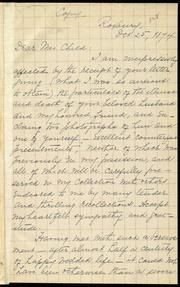 Copy.
Roxbury,
Oct. 25, 1874.
Dear Mrs. Child:
I am inexpressibly
affected by the receipt of your letter,
giving (what I was so anxious
to obtain) the particulars of the illness
and death of your beloved husband
and my honored friend, and in-
closing two photographs of him and
one of yourself — excellent
presentments, neither of which was
previously in my possession, and
all of which will be carefully pre-
served in my collection with others
endeared to me by many tender
and thrilling recollections. Accept
my heartfelt sympathy and grat-
itude.
Having had such a bereave-
ment — after almost half a century
of happy wedded life — it could not
have been otherwise than a severe